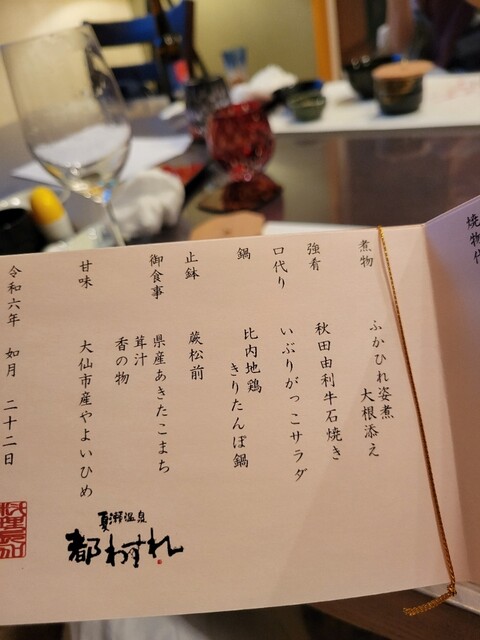 焼物代
煮物
ふかひれ姿煮
大根添え
強肴
秋田由利牛石焼き
口代り
いぶりがっこサラダ
鍋
比内地鶏
きりたんぽ鍋
止鉢
蕨松前
御食事
県産あきたこまち
茸汁
香の物
甘味
大仙市産やよいひめ
令和六年 如月 二十二日
夏瀬温泉
都わすれ